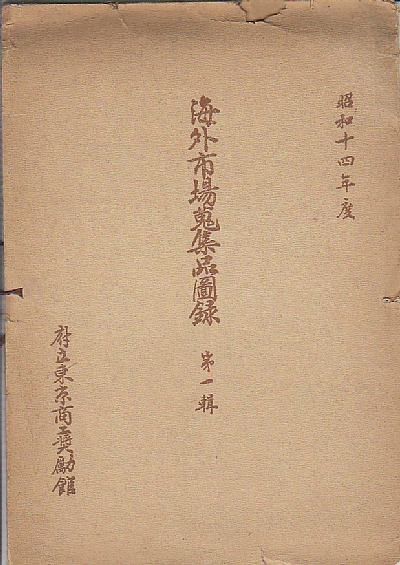 昭和十四年度
海外市場蒐集品圖録 第一輯
府立東京商工奬勵館